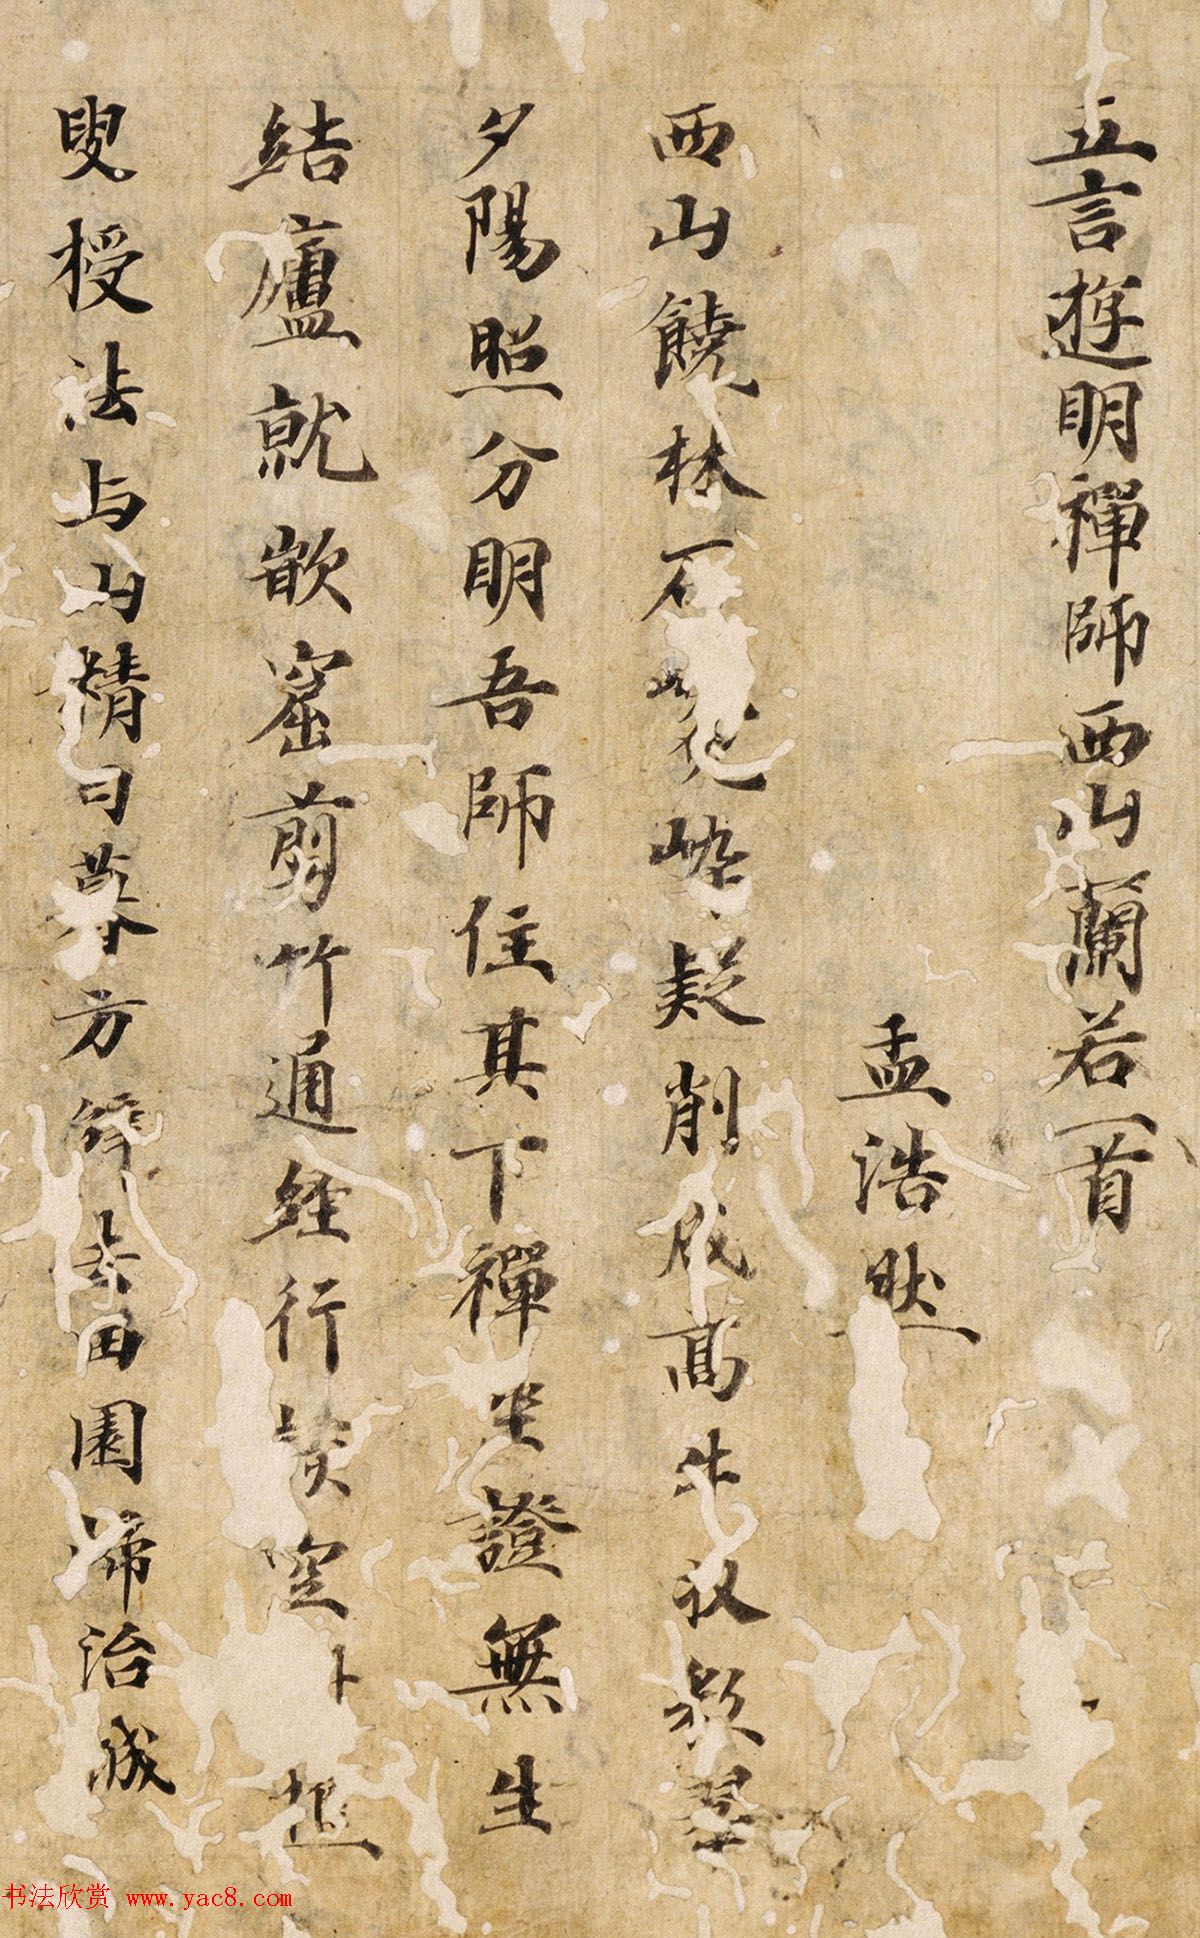 五言遊明禪師西山蘭若一首
孟浩然
西山饒林石疑削成高午収翠
夕陽照分明吾師住其下禪坐證無生
結廬就嵌窟翦竹通經行空
叟授法与山精日暮方辞去田園歸治城
书法欣赏 www.yac8.com